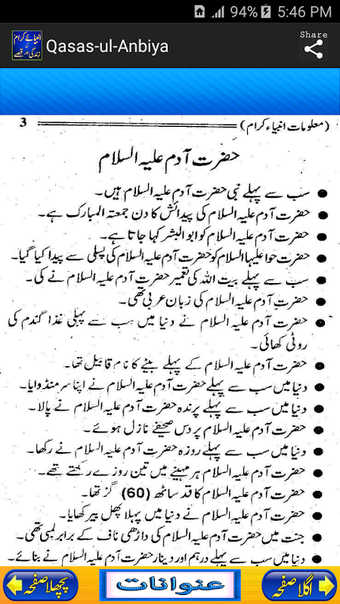 94% 5:46 PM
انبیائے کرام
زندگی قصے
Qasas-ul-Anbiya
Share
(معلومات انبیاء کرام) 3
حضرت آدم علیہ السلام
● سب سے پہلے نبی حضرت آدم علیہ السلام ہیں۔
● حضرت آدم علیہ السلام کی پیدائش کا دن جمعتہ المبارک ہے۔
● حضرت آدم علیہ السلام کو ابوالبشر کہا جاتا ہے۔
● حضرت حوا علیہا السلام کو حضرت آدم علیہ السلام کی پسلی سے پیدا کیا گیا۔
● سب سے پہلے بیت اللہ کی تعمیر حضرت آدم علیہ السلام نے کی۔
● حضرت آدم علیہ السلام کی زبان عربی تھی۔
● حضرت آدم علیہ السلام نے دنیا میں سب سے پہلی غذا گندم کی
روٹی کھائی۔
● حضرت آدم علیہ السلام کے پہلے بیٹے کا نام قابیل تھا۔
● دنیا میں سب سے پہلے حضرت آدم علیہ السلام نے اپنا سر منڈوایا۔
● دنیا میں سب سے پہلے پرندہ حضرت آدم علیہ السلام نے پالا۔
● حضرت آدم علیہ السلام پر دس صحیفے نازل ہوئے۔
● دنیا میں سب سے پہلے روزہ حضرت آدم علیہ السلام نے رکھا۔
● حضرت آدم علیہ السلام ہر مہینے میں تین روزے رکھتے تھے۔
● حضرت آدم علیہ السلام کا قد ساٹھ (60) گز تھا۔
● حضرت آدم علیہ السلام نے دنیا میں پہلا پھل بیر کھایا۔
● جنت میں حضرت آدم علیہ السلام کی داڑھی ناف کے برابر لمبی تھی۔
● دنیا میں سب سے پہلے درہم اور دینار حضرت آدم علیہ السلام نے بنائے۔
اگلا صفحہ
عنوانات
پچھلا صفحہ